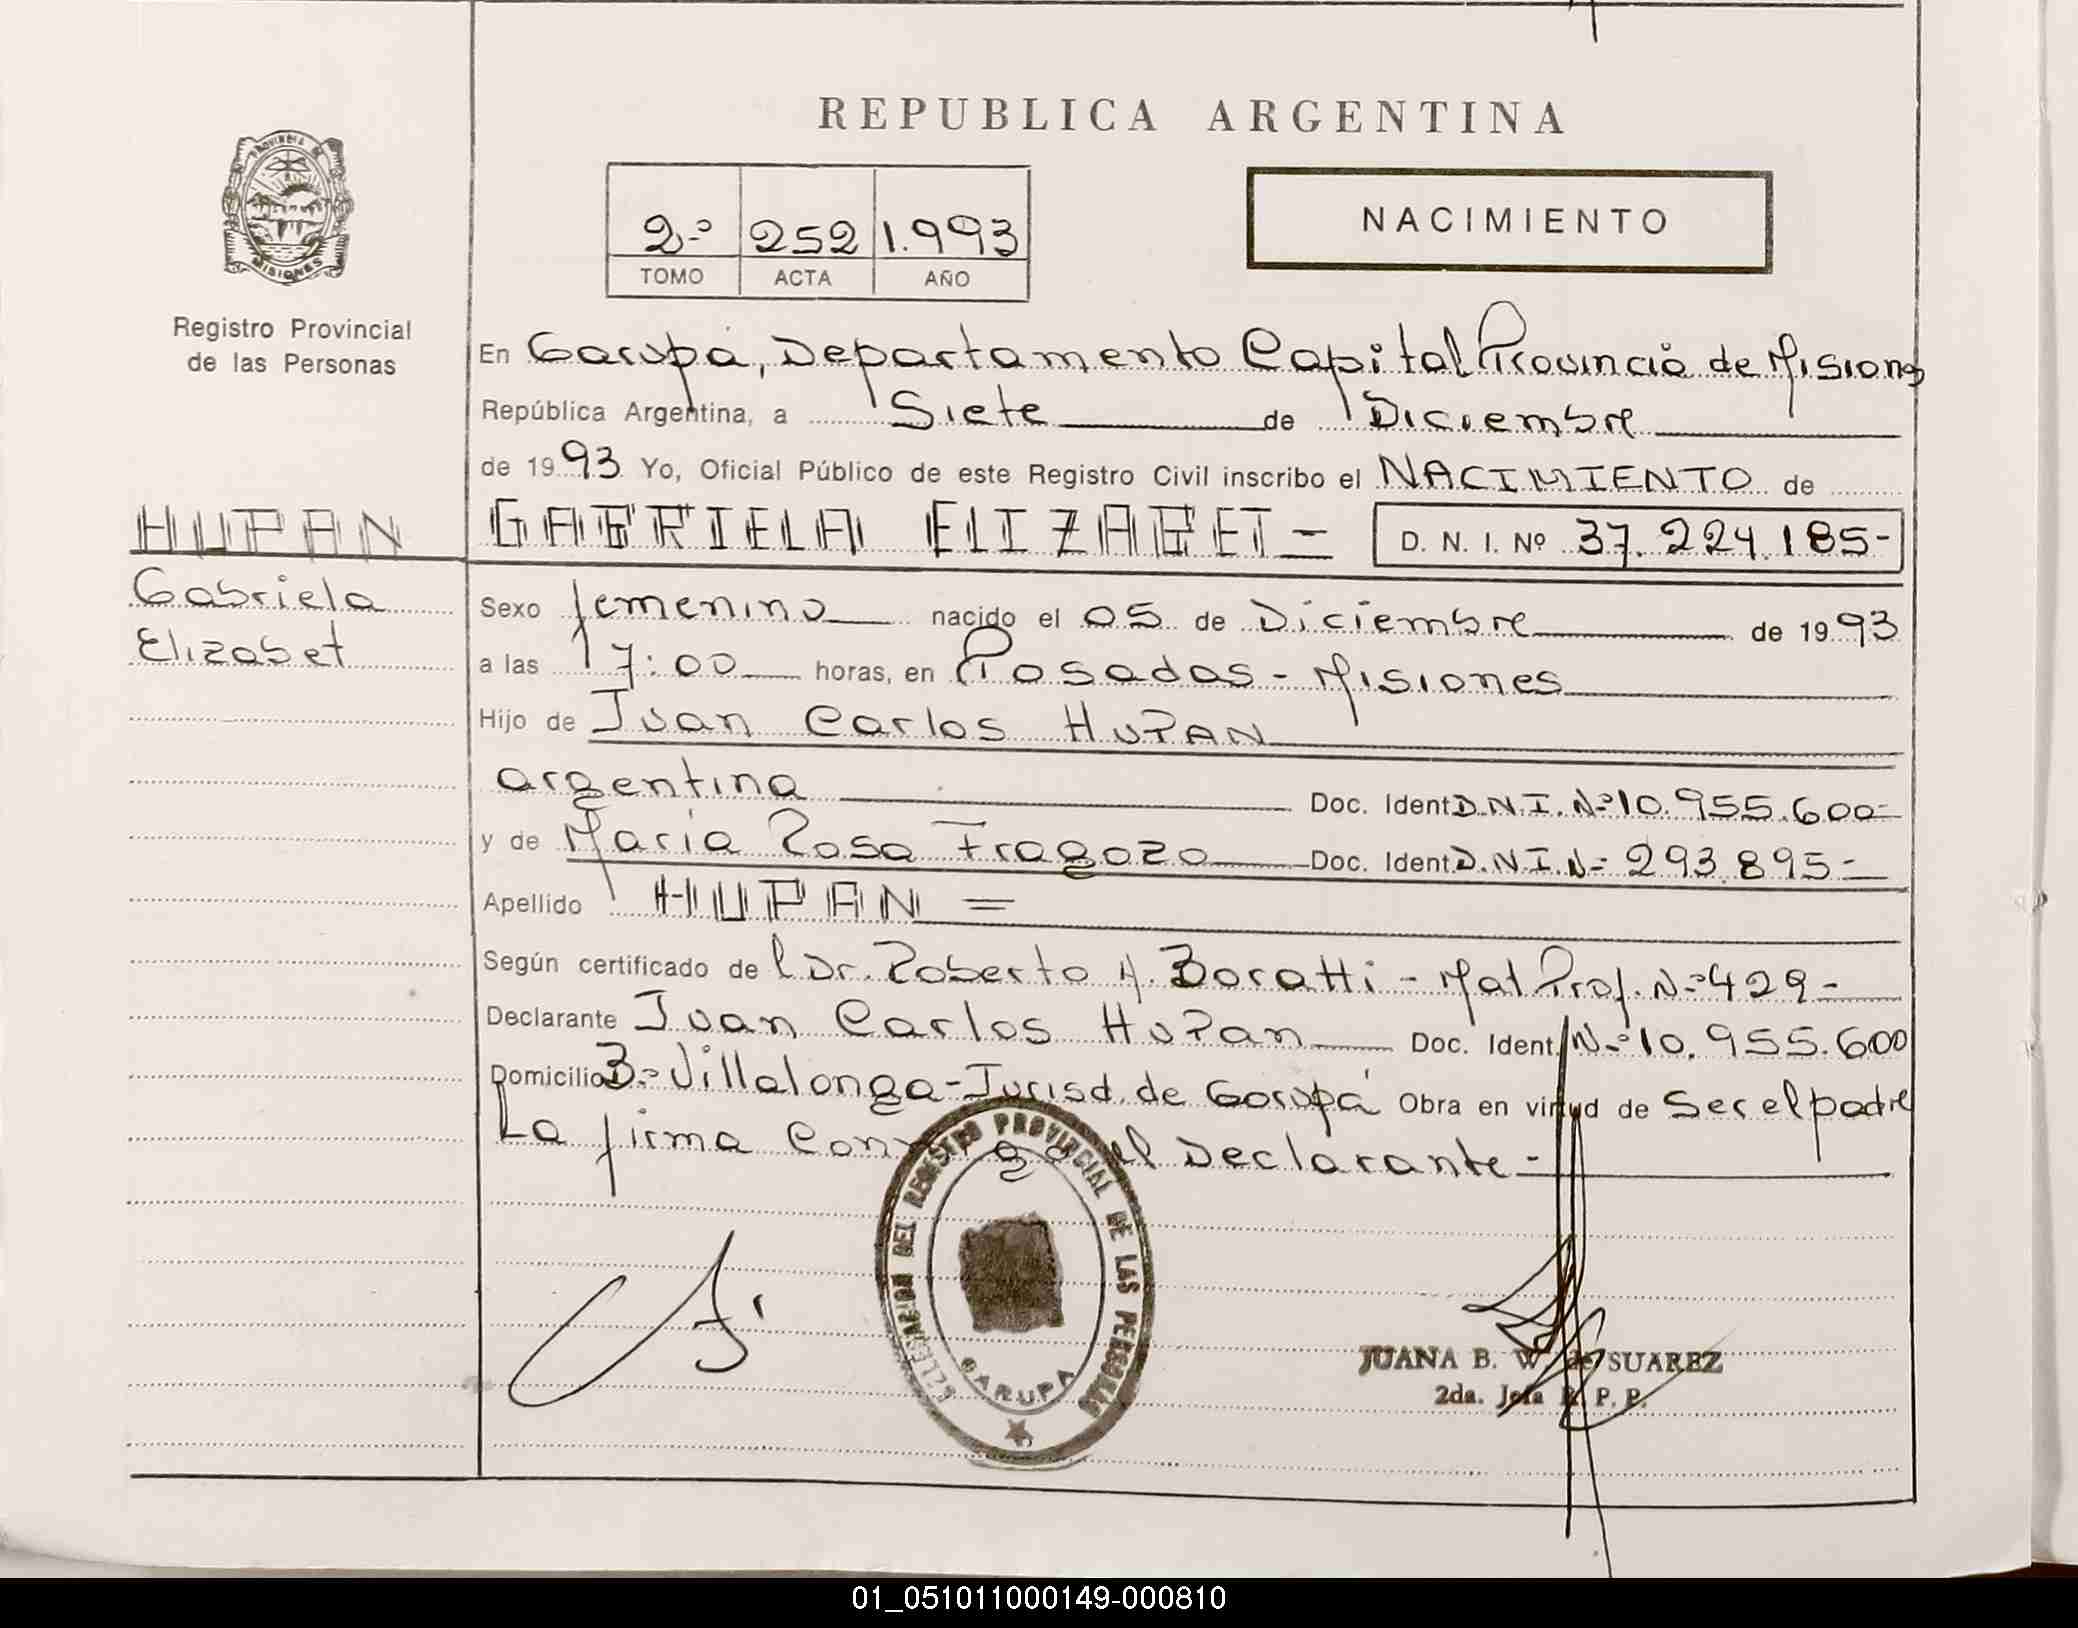 REPUBLICA ARGENTINA
PROVINCIA DE
MISIONES
Registro Provincial
de las Personas
2º 252 1.993
TOMO ACTA AÑO
NACIMIENTO
En Garupá, Departamento Capital Provincia de Misiones
República Argentina, a Siete de Diciembre
de 1993 Yo, Oficial Público de este Registro Civil inscribo el NACIMIENTO de
HUPAN
Gabriela
Elizabet
GABRIELA ELIZABET = D. N. I. Nº 37.224.185-
Sexo femenino nacido el 05 de Diciembre de 1993
a las 17:00 horas, en Posadas - Misiones
Hijo de Juan Carlos HUPAN
argentina Doc. Ident D.N.I. Nº 10.955.600=
y de María Rosa Fragozo Doc. Ident D.N.I. N= 293.895-
Apellido HUPAN =
Según certificado de l Dr. Roberto A. Boratti - Mat Prof. Nº 429-
Declarante Juan Carlos HuPan Doc. Ident. Nº 10.955.600
Domicilio Bº Villalonga - Jurisd. de Garupá Obra en virtud de Ser el padre
La firma Conmigo el Declarante -
DELEGACION DEL REGISTRO PROVINCIAL DE LAS PERSONAS
GARUPA
JUANA B. W. de SUAREZ
2da. Jefa R. P. P.
01_051011000149-000810